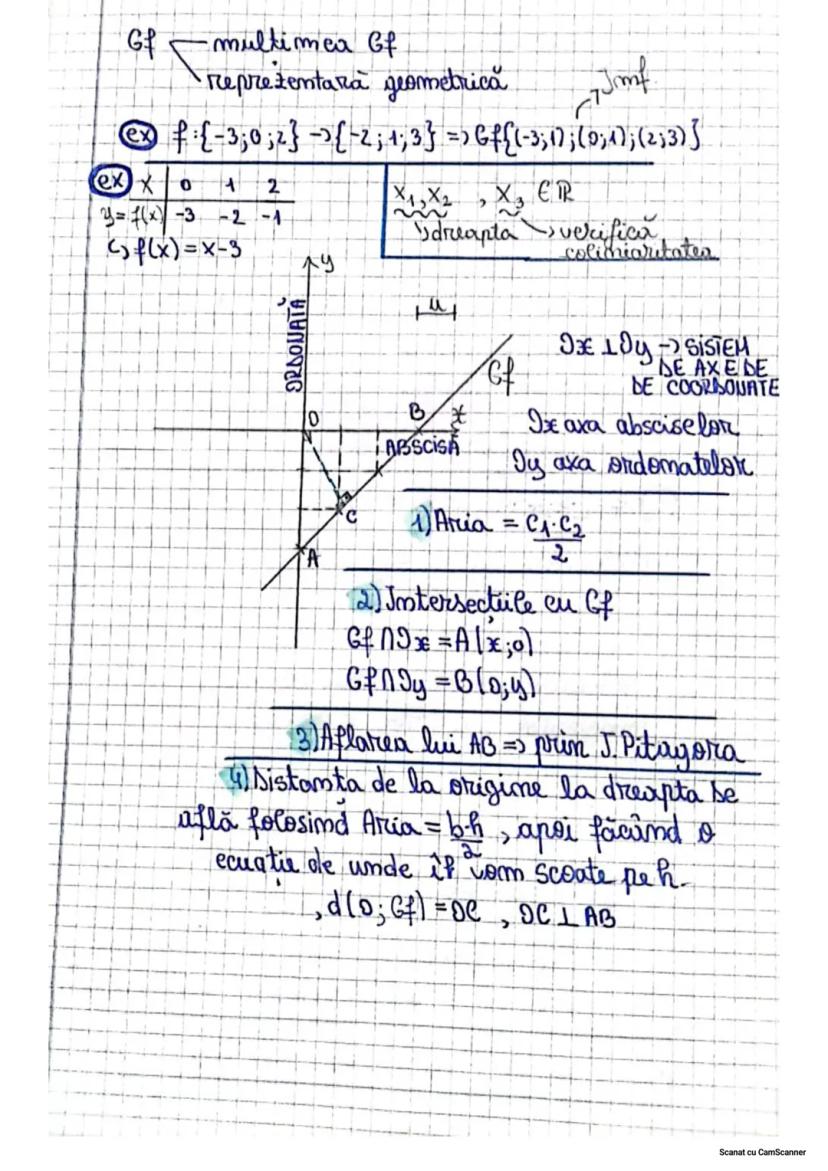 Gf
multimea Gf
reprezentară geometrică
Imf
ex f:{-3;0;2} -> {-2;1;3} => Gf{(-3;1);(0;1);(2;3)}
ex x 0 1 2
y=f(x) -3 -2 -1
f(x)=x-3
x₁,x₂ , x₃ ∈ ℝ
dreapta -> verifică
coliniaritatea
y
ORDONATĂ
u
Gf
O
B
x
ABSCISĂ
C
A
Ox ⊥ Oy -> SISTEM
DE AXE DE
DE COORDONATE
Ox axa absciselor
Oy axa ordonatelor
1) Aria = C₁·C₂
2
2) Intersecțiile cu Gf
Gf∩Ox = A(x;0)
Gf∩Oy = B(0;y)
3) Aflarea lui AB => prin T.Pitagora
4) Distanța de la origine la dreapta se
află folosind Aria = b·h/2, apoi făcând o
ecuație de unde îl vom scoate pe h.
, d(O;Gf) = OC , OC ⊥ AB
Scanat cu CamScanner